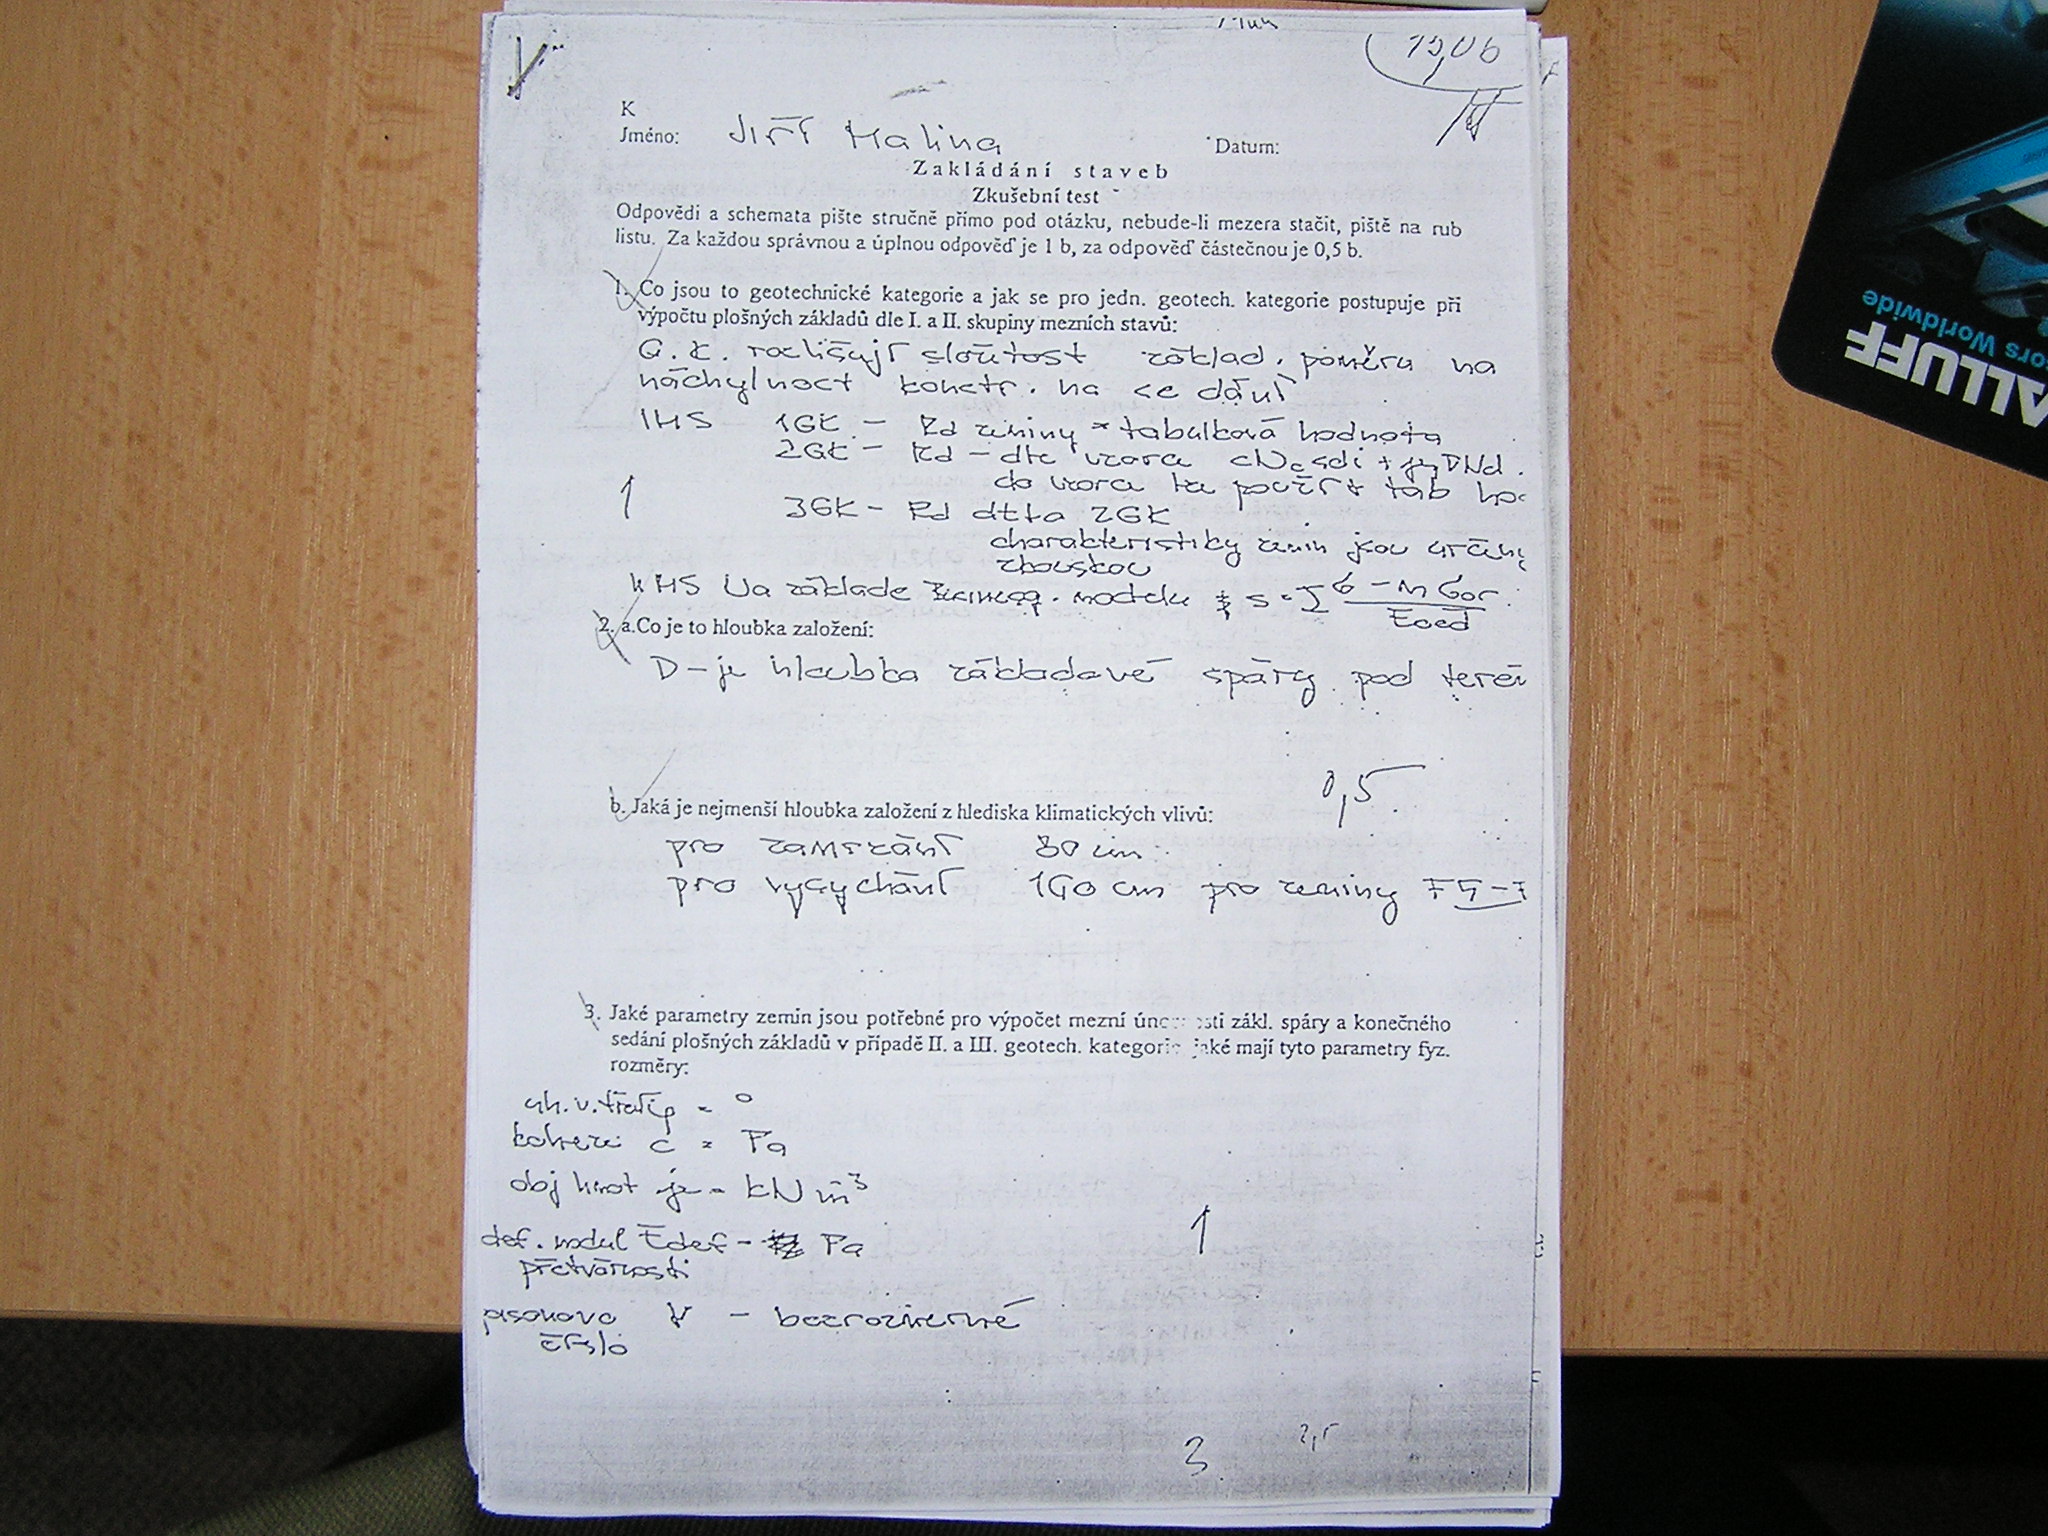 K
Jméno: Jiří Malina Datum:
Zakládání staveb
Zkušební test
Odpovědi a schemata pište stručně přímo pod otázku, nebude-li mezera stačit, piště na rub
listu. Za každou správnou a úplnou odpověď je 1 b, za odpověď částečnou je 0,5 b.
1. Co jsou to geotechnické kategorie a jak se pro jedn. geotech. kategorie postupuje při
výpočtu plošných základů dle I. a II. skupiny mezních stavů:
G.K. rozlišují složitost základ. poměru na
náchylnost konstr. na sedání
1MS 1GK - Rd zeminy = tabulková hodnota
2GK - Rd - dle vzorce
do vzorce lze použít tab
1 3GK - Rd dtto 2GK
charakteristiky zemin jsou určeny
zkouškou
II MS Na základe modelu
2. a. Co je to hloubka založení:
D - je hloubka základové spáry pod terén
0,5
b. Jaká je nejmenší hloubka založení z hlediska klimatických vlivů:
pro zamrzání 80 cm
pro vysychání 160 cm pro zeminy
3. Jaké parametry zemin jsou potřebné pro výpočet mezní únosnosti zákl. spáry a konečného
sedání plošných základů v případě II. a III. geotech. kategorie jaké mají tyto parametry fyz.
rozměry:
úh. v. tření φ = °
koheze c = Pa
obj hmot je = kN m³
def. modul Edef - Pa
přetvárnosti
1
pisonovo ν - bezrozměrné
číslo
3 2,5
ALLUFF
ors Worldwide